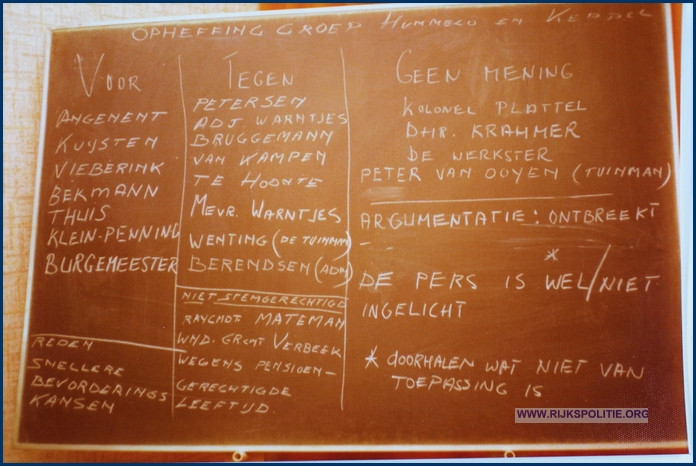 OPHEFFING GROEP HUMMELO EN KEPPEL
VOOR
ANGENENT
KUYSTEN
VIEBERINK
BEKMANN
THUIS
KLEIN-PENNING
BURGEMEESTER
REDEN
SNELLERE
BEVORDERINGS
KANSEN
TEGEN
PETERSEN
ADJ. WARNTJES
BRUGGEMANN
VAN KAMPEN
TE HOONTE
MEVR. WARNTJES
WENTING (DE TUINMAN)
BERENDSEN (ADM)
NIET STEMGERECHTIGD
MATEMAN
WND. GRCMT VERBEEK
WEGENS PENSIOEN-
GERECHTIGDE
LEEFTIJD.
GEEN MENING
KOLONEL PLATTEL
DHR. KRAHMER
DE WERKSTER
PETER VAN OOYEN (TUINMAN)
ARGUMENTATIE: ONTBREEKT
*
DE PERS IS WEL/NIET
INGELICHT
* DOORHALEN WAT NIET VAN
TOEPASSING IS
WWW.RIJKSPOLITIE.ORG